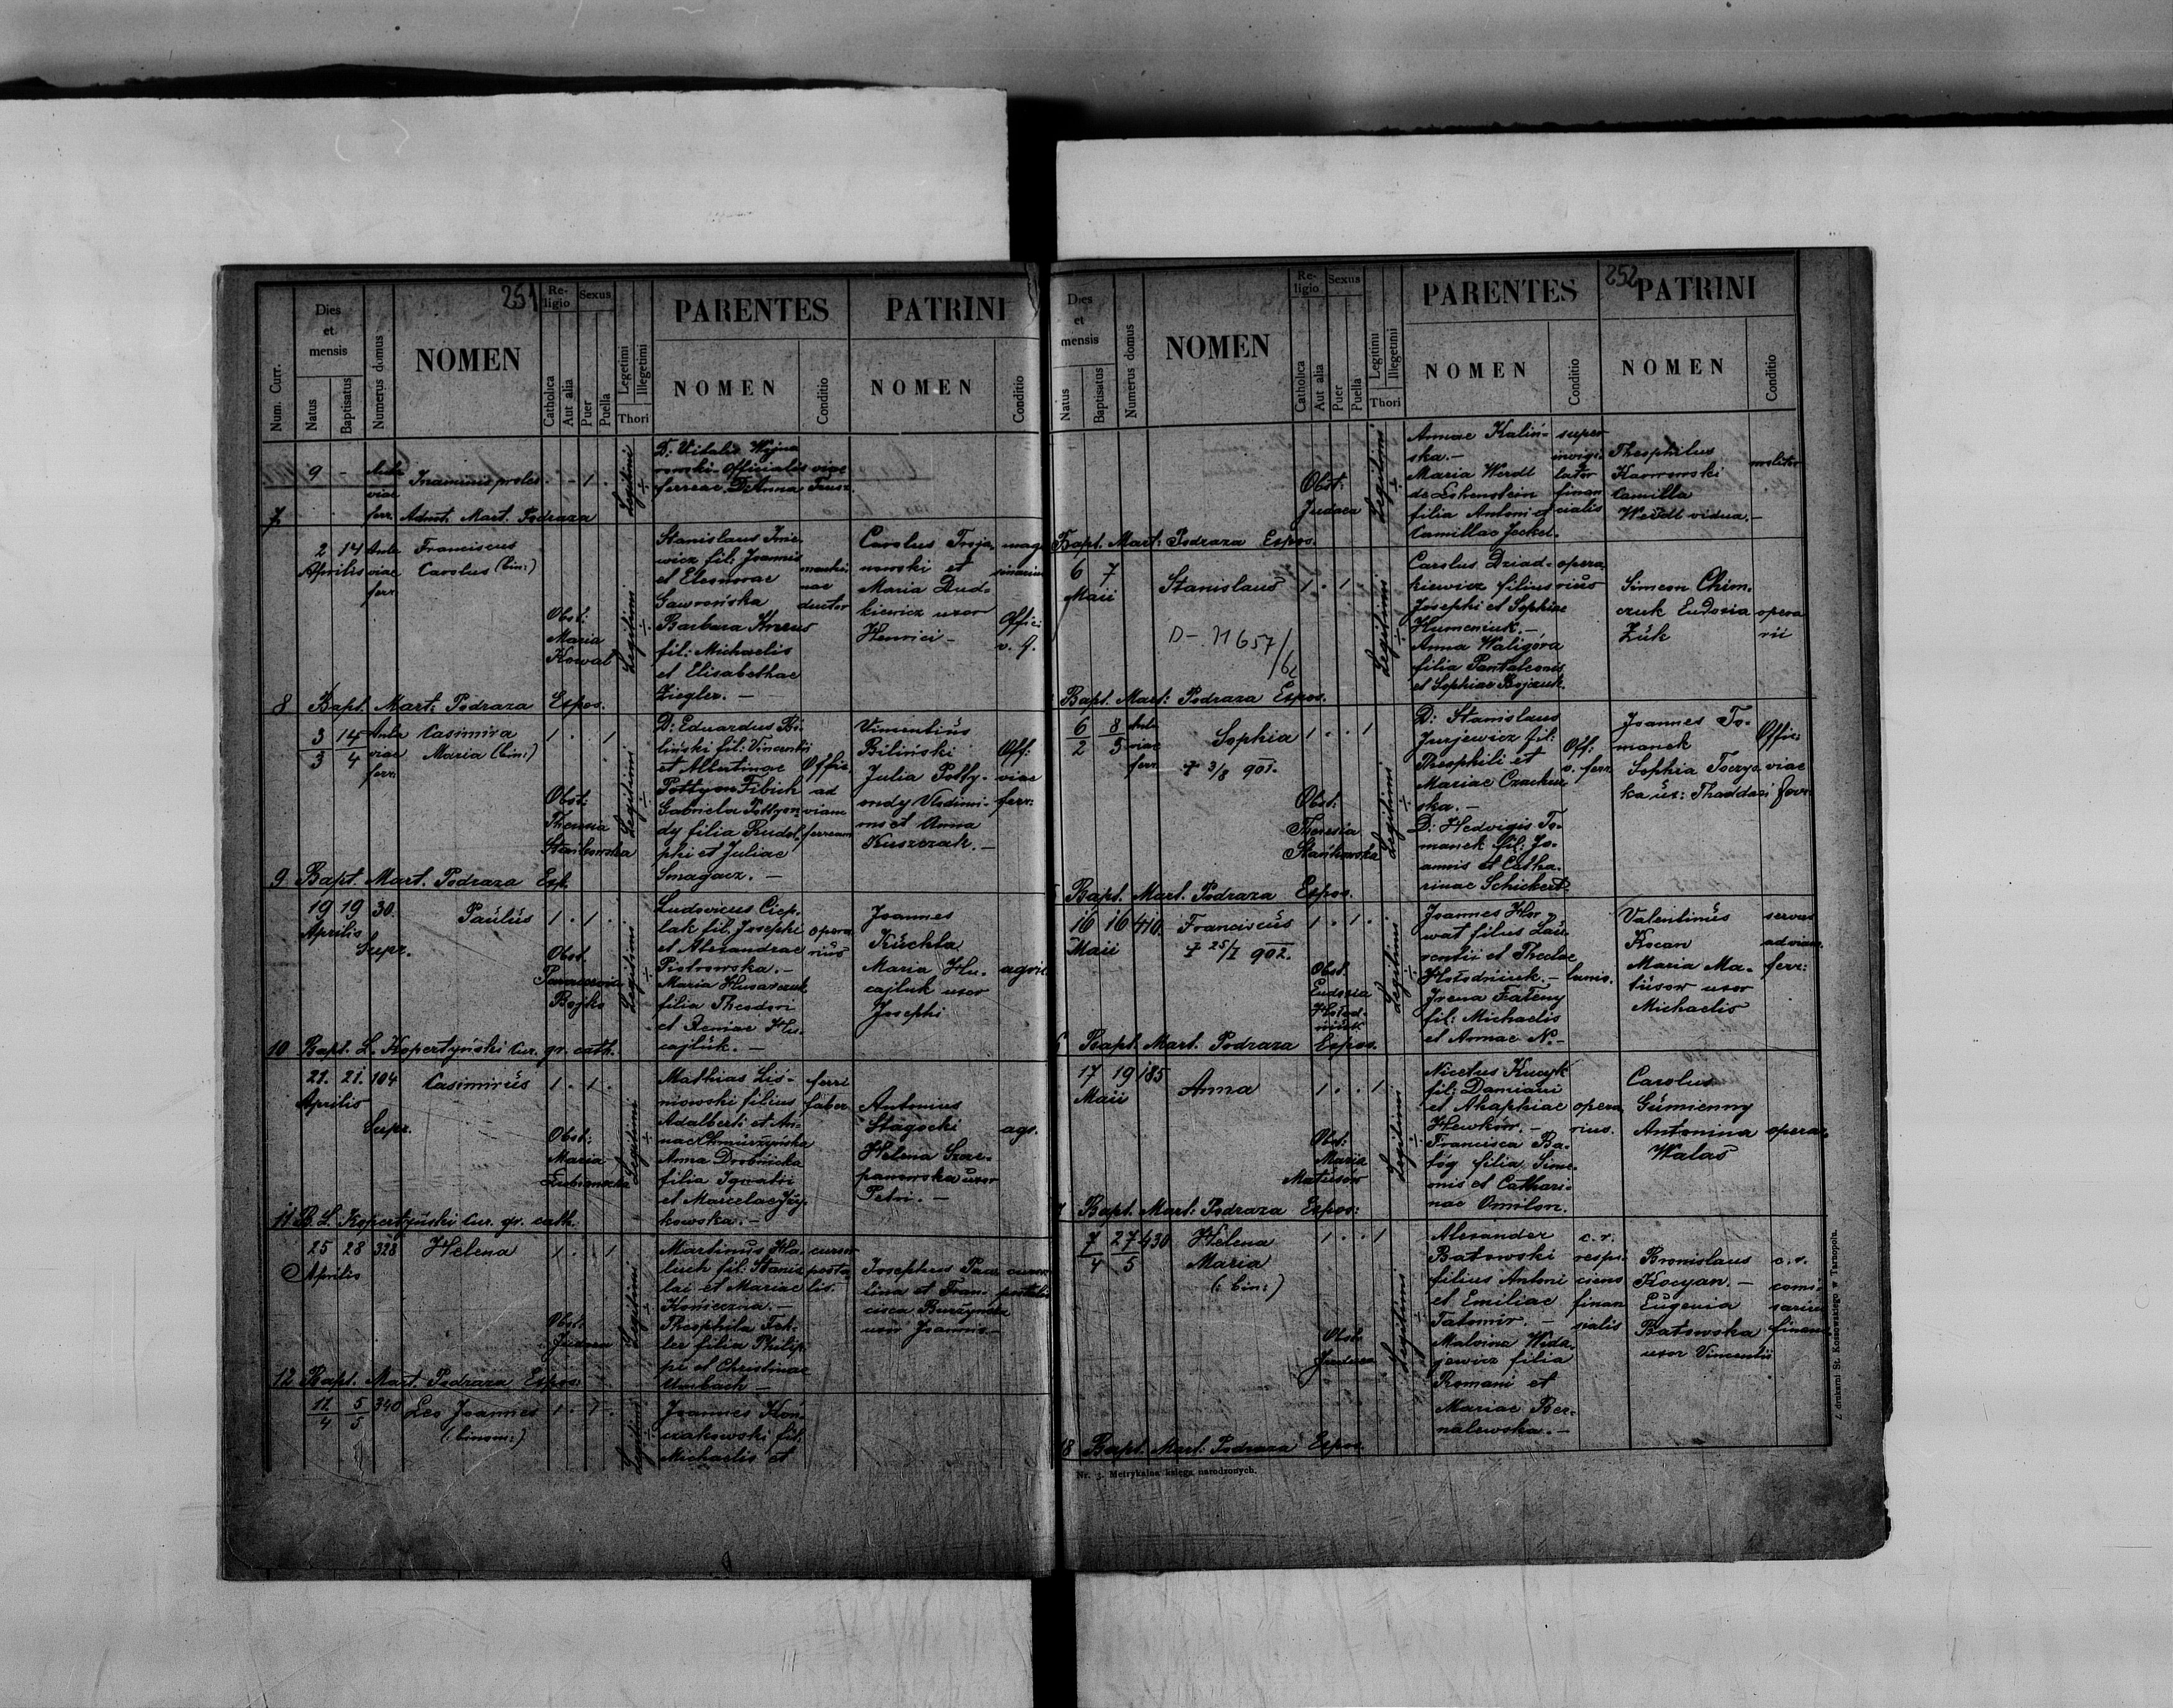 251
Num. Curr.
Dies et mensis
Natus
Baptisatus
Numerus domus
NOMEN
Religio
Catholica
Aut alia
Sexus
Puer
Puella
Legetimi
Illegetimi
Thori
PARENTES
NOMEN
Conditio
PATRINI
NOMEN
Conditio
7
9 -
viae
ferr.
Inominis proles
Admt. Mart. Podraza
1
Legitimi
D: Vitalis Wojna
rowski Officialis viae
ferreae. D: Anna
8
2 14
Aprilis
Ante
viae
ferr.
Franciscus
Carolus (bin:)
Obst:
Maria
Kowal
Legitimi
Stanislaus
wicz fil: Joannis
et Eleonorae
Gawrońska
Barbara
fil: Michaelis
et Elisabethae
Ziegler. -
machi
nae
ductor
Carolus Troja
nowski et
Maria Dud-
kiewicz uxor
Henrici -
Offic:
v. f.
Bapt. Mart: Podraza Expos.
9
3 14
3 4
Ante
viae
ferr.
Casimira
Maria (bin:)
1 . . 1
Obst:
Theresia
Stańkowska
Legitimi
D: Eduardus Bi-
liński fil: Vincentii
et Albertinae
Gabriela
dy filia Rudol
phi et Juliae
Smagacz. -
Offic.
ad
viam
ferream
Vincentius
Biliński
Julia Potty-
ondy Vladimi-
rus et Anna
Kuszczak. -
Off:
viae
ferr:
Bapt. Mart. Podraza Exp.
10
19 19 30.
Aprilis
Supr.
Paulus
1 . 1 .
Obst.
Bojko
Legitimi
Ludovicus Ciep-
lak fil. Josephi
et Alexandrae
Piotrowska. -
Maria
filia Theodori
et Xeniae Hu-
cajluk. -
opera
rius
Joannes
Kuchta
Maria Hu-
cajluk uxor
Josephi
agric
Bapt. L. Kopertyński Cur. gr. cath.
11
21. 21. 104
Aprilis
Supr.
Casimirus
1 . 1 .
Obst:
Maria
Legitimi
Mathias Liś-
niowski filius
Adalberti et An-
nae
Anna Drobnicka
filia Ignatii
et Marcelae
kowska. -
ferri
faber
Antonius
Stagocki
Helena Szcze-
panowska uxor
Petri. -
agr.
B. L. Kopertyński Cur. gr. cath.
12
25 28 328
Aprilis
Helena
1 . . 1
Obst:
Judaea
Legitimi
Martinus Ha-
luch fil: Stanis
lai et Mariae
Konieczna. -
Theophila
ler filia Philip
pi et Christinae
Umbach -
cursor
posta
lis.
Josephus
lina et Fran-
cisca Burzyńska
uxor Joannis -
cursor
postalis
Bapt. Mart. Podraza Expos:
12 5
4 5
340
Leo Joannes
(: binom:)
1 . 1 .
Legitimi
Joannes Koń
czakowski fil:
Michaelis et
252
Dies et mensis
Natus
Baptisatus
Numerus domus
NOMEN
Religio
Catholica
Aut alia
Sexus
Puer
Puella
Legitimi
Illegetimi
Thori
PARENTES
NOMEN
Conditio
PATRINI
NOMEN
Conditio
Obst:
Judaea
Legitimi
Annae Kaliń-
ska. -
Maria Werdl
de Lehenstein
filia Antoni et
Camillae Jeckel.
super
invigi
lator
finan
cialis
Theophilus
Karwowski
Camilla
Werdl vidua. -
molitor
Bapt. Mart: Podraza Expos.
6 7
Maii
Stanislaus
1 . 1
D - 71657/62
Legitimi
Carolus Dziad-
kiewicz filius
Josephi et Sophiae
Humeniuk. -
Anna Waligóra
filia Pantaleonis
et Sophiae Bojczuk.
opera
rius
Simeon Chim-
czuk Eudoxia
Żuk
opera
rii
Bapt. Mart: Podraza Expos.
6 8
2 5
Ante
viae
ferr.
Sophia
1 . . 1
† 3/8 901.
Obst:
Theresia
Stańkowska
Legitimi
D: Stanislaus
Jurjewicz fil:
Theophili et
Mariae Czachur
ska. -
D: Hedvigis To-
manek fil: Jo-
annis et Catha-
rinae Schickert
Off:
v. ferr.
Joannes To-
manek
Sophia
ka ux: Thaddaei
Offic:
viae
ferr.
Bapt. Mart. Podraza Expos.
16 16 410.
Maii
Franciscus
† 25/I 902.
1 . 1 .
Obst.
Eudoxia
Hołod-
niuk
Legitimi
Joannes Hor
wat filius Lau-
rentii et Theclae
Hołodniuk. -
Irena Fateny
fil: Michaelis
et Annae N. -
lanio.
Valentinus
Kocan
Maria Ma-
tusow uxor
Michaelis
servus
ad viam
ferr:
6 Bapt. Mart. Podraza Expos.
17 19 185
Maii
Anna
1 . . 1
Obst:
Maria
Matusow
Legitimi
Nicetus Kucyk
fil: Damiani
et Ahaphiae
Hewków. -
Francisca Ba-
tóg filia Sime-
onis et Cathari-
nae Omilon.
opera
rius.
Carolus
Gumienny
Antonina
Walas
operar.
7 Bapt. Mart: Podraza Expos:
7 27
4 5
430
Helena
Maria
(: bin:)
1 . . 1
Obst:
Judaea
Legitimi
Alexander
Batowski
filius Antoni
et Emiliae
Tatomir. -
Malvina Wida-
jewicz filia
Romani et
Mariae Ber-
nalewska. -
c. r.
respi
ciens
finan
cialis
Bronislaus
Kocyan. -
Eugenia
Batowska
uxor Vincentii
c. r.
comi-
sarius
finan
18 Bapt. Mart: Podraza Expos.
Nr. 3. Metrykalna księga narodzonych.
Z drukarni St. Kossowskiego w Tarnopolu.